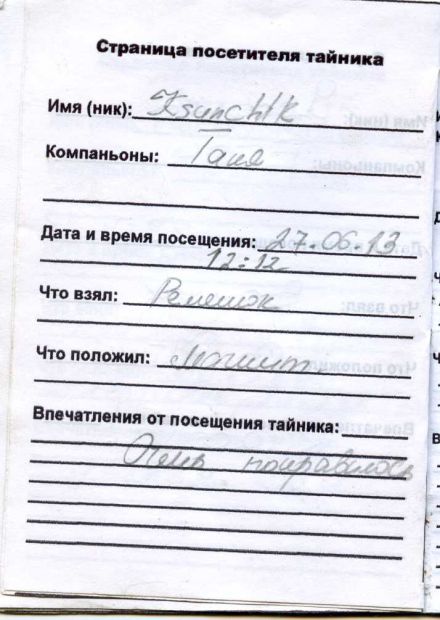 Страница посетителя тайника
Имя (ник): Ksunchik
Компаньоны: Таня
Дата и время посещения: 27.06.13
12:12
Что взял: Ремешок
Что положил: Магнит
Впечатления от посещения тайника:
Очень понравилось